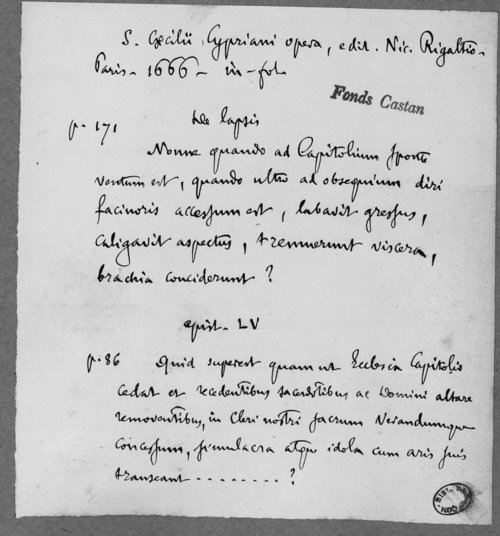 S. Cæcilii Cypriani opera, edit. Nic. Rigaltio.
Paris. 1666. in-fol.
Fonds Castan
p. 171 De lapsis
Nonne quando ad Capitolium sponte
ventum est, quando ultro ad obsequium diri
facinoris accessum est, labavit gressus,
caligavit aspectus, tremuerunt viscera,
brachia conciderunt ?
epist. LV
p. 86 Quid superest quam ut Ecclesia Capitolio
cedat et recedentibus sacerdotibus ac Domini altare
removentibus, in Cleri nostri sacrum venerandumque
concessum, simulacra atque idola cum aris suis
transeant . . . . . . . . ?